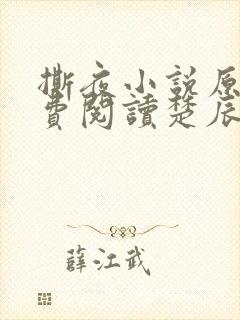 撕夜小説原
費閱讀楚辰
薛江武